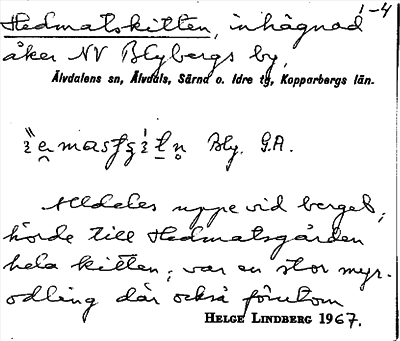 1-4
Hedmatskitten, inhägnad
åker NV Blybergs by,
Älvdalens sn, Älvdals, Särna o. Idre tg, Kopparbergs län.
Bly. G.A.
Alldeles uppe vid berget,
hörde till Hedmatsgården
hela kitten; var en stor myr-
odling där också förutom
HELGE LINDBERG 1967.